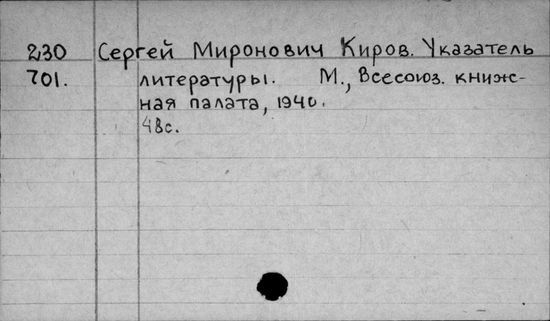 230 Сергей Миронович Киров. Указатель
701. литературы. М., Всесоюз. книж-
ная палата, 1940.
48с.